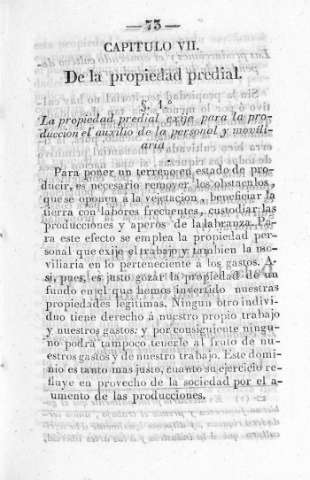 — 73 —
CAPITULO VII.
De la propiedad predial.
§. 1.°
La propiedad predial exije para la pro-
duccion el auxilio de la personal y movili-
aria
Para poner un terreno en estado de pro-
ducir, es necesario remover los obstaculos,
que se oponen á la vejetacion, beneficiar la
tierra con labores frecuentes, custodiar las
producciones y aperos de la labranza. Pa-
ra este efecto se emplea la propiedad per-
sonal que exije el trabajo y tambien la mo-
viliaria en lo perteneciente á los gastos. A-
si, pues, es justo gozar la propiedad de un
fundo en el que hemos invertido nuestras
propiedades legitimas. Ningun otro indivi-
duo tiene derecho á nuestro propio trabajo
y nuestros gastos: y por consiguiente ningu-
no podrá tampoco tenerle al fruto de nu-
estros gastos y de nuestro trabajo. Este domi-
nio es tanto mas justo, cuanto su ejercicio re-
fluye en provecho de la sociedad por el a-
umento de las producciones.